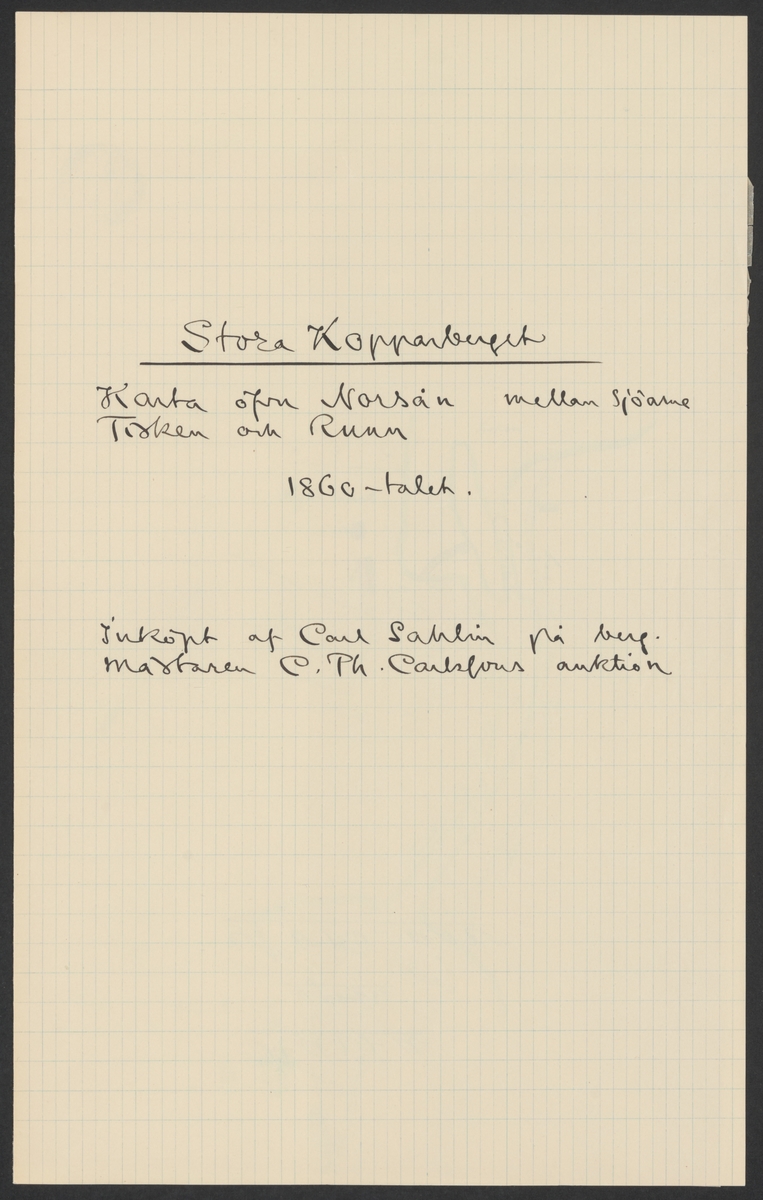 Stora Kopparberget
Karta öfver Norsån mellan Sjöarne
Tisken och Runn
1860-talet.
Inköpt af Carl Sahlin på berg-
mästaren C. Th. Carlssons auktion